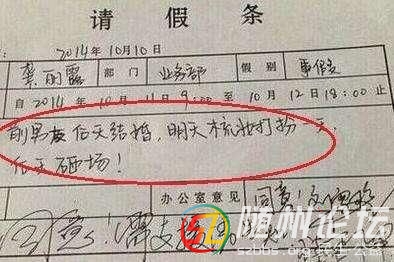 请假条
2014年10月10日
龚丽露 部门 业务部 假别 事假
自2014年10月11日9:00 至 10月12日18:00止
前男友后天结婚,明天梳妆打扮一天.
后天砸场!
办公室意见 同意!
同意!需支援
随州论坛